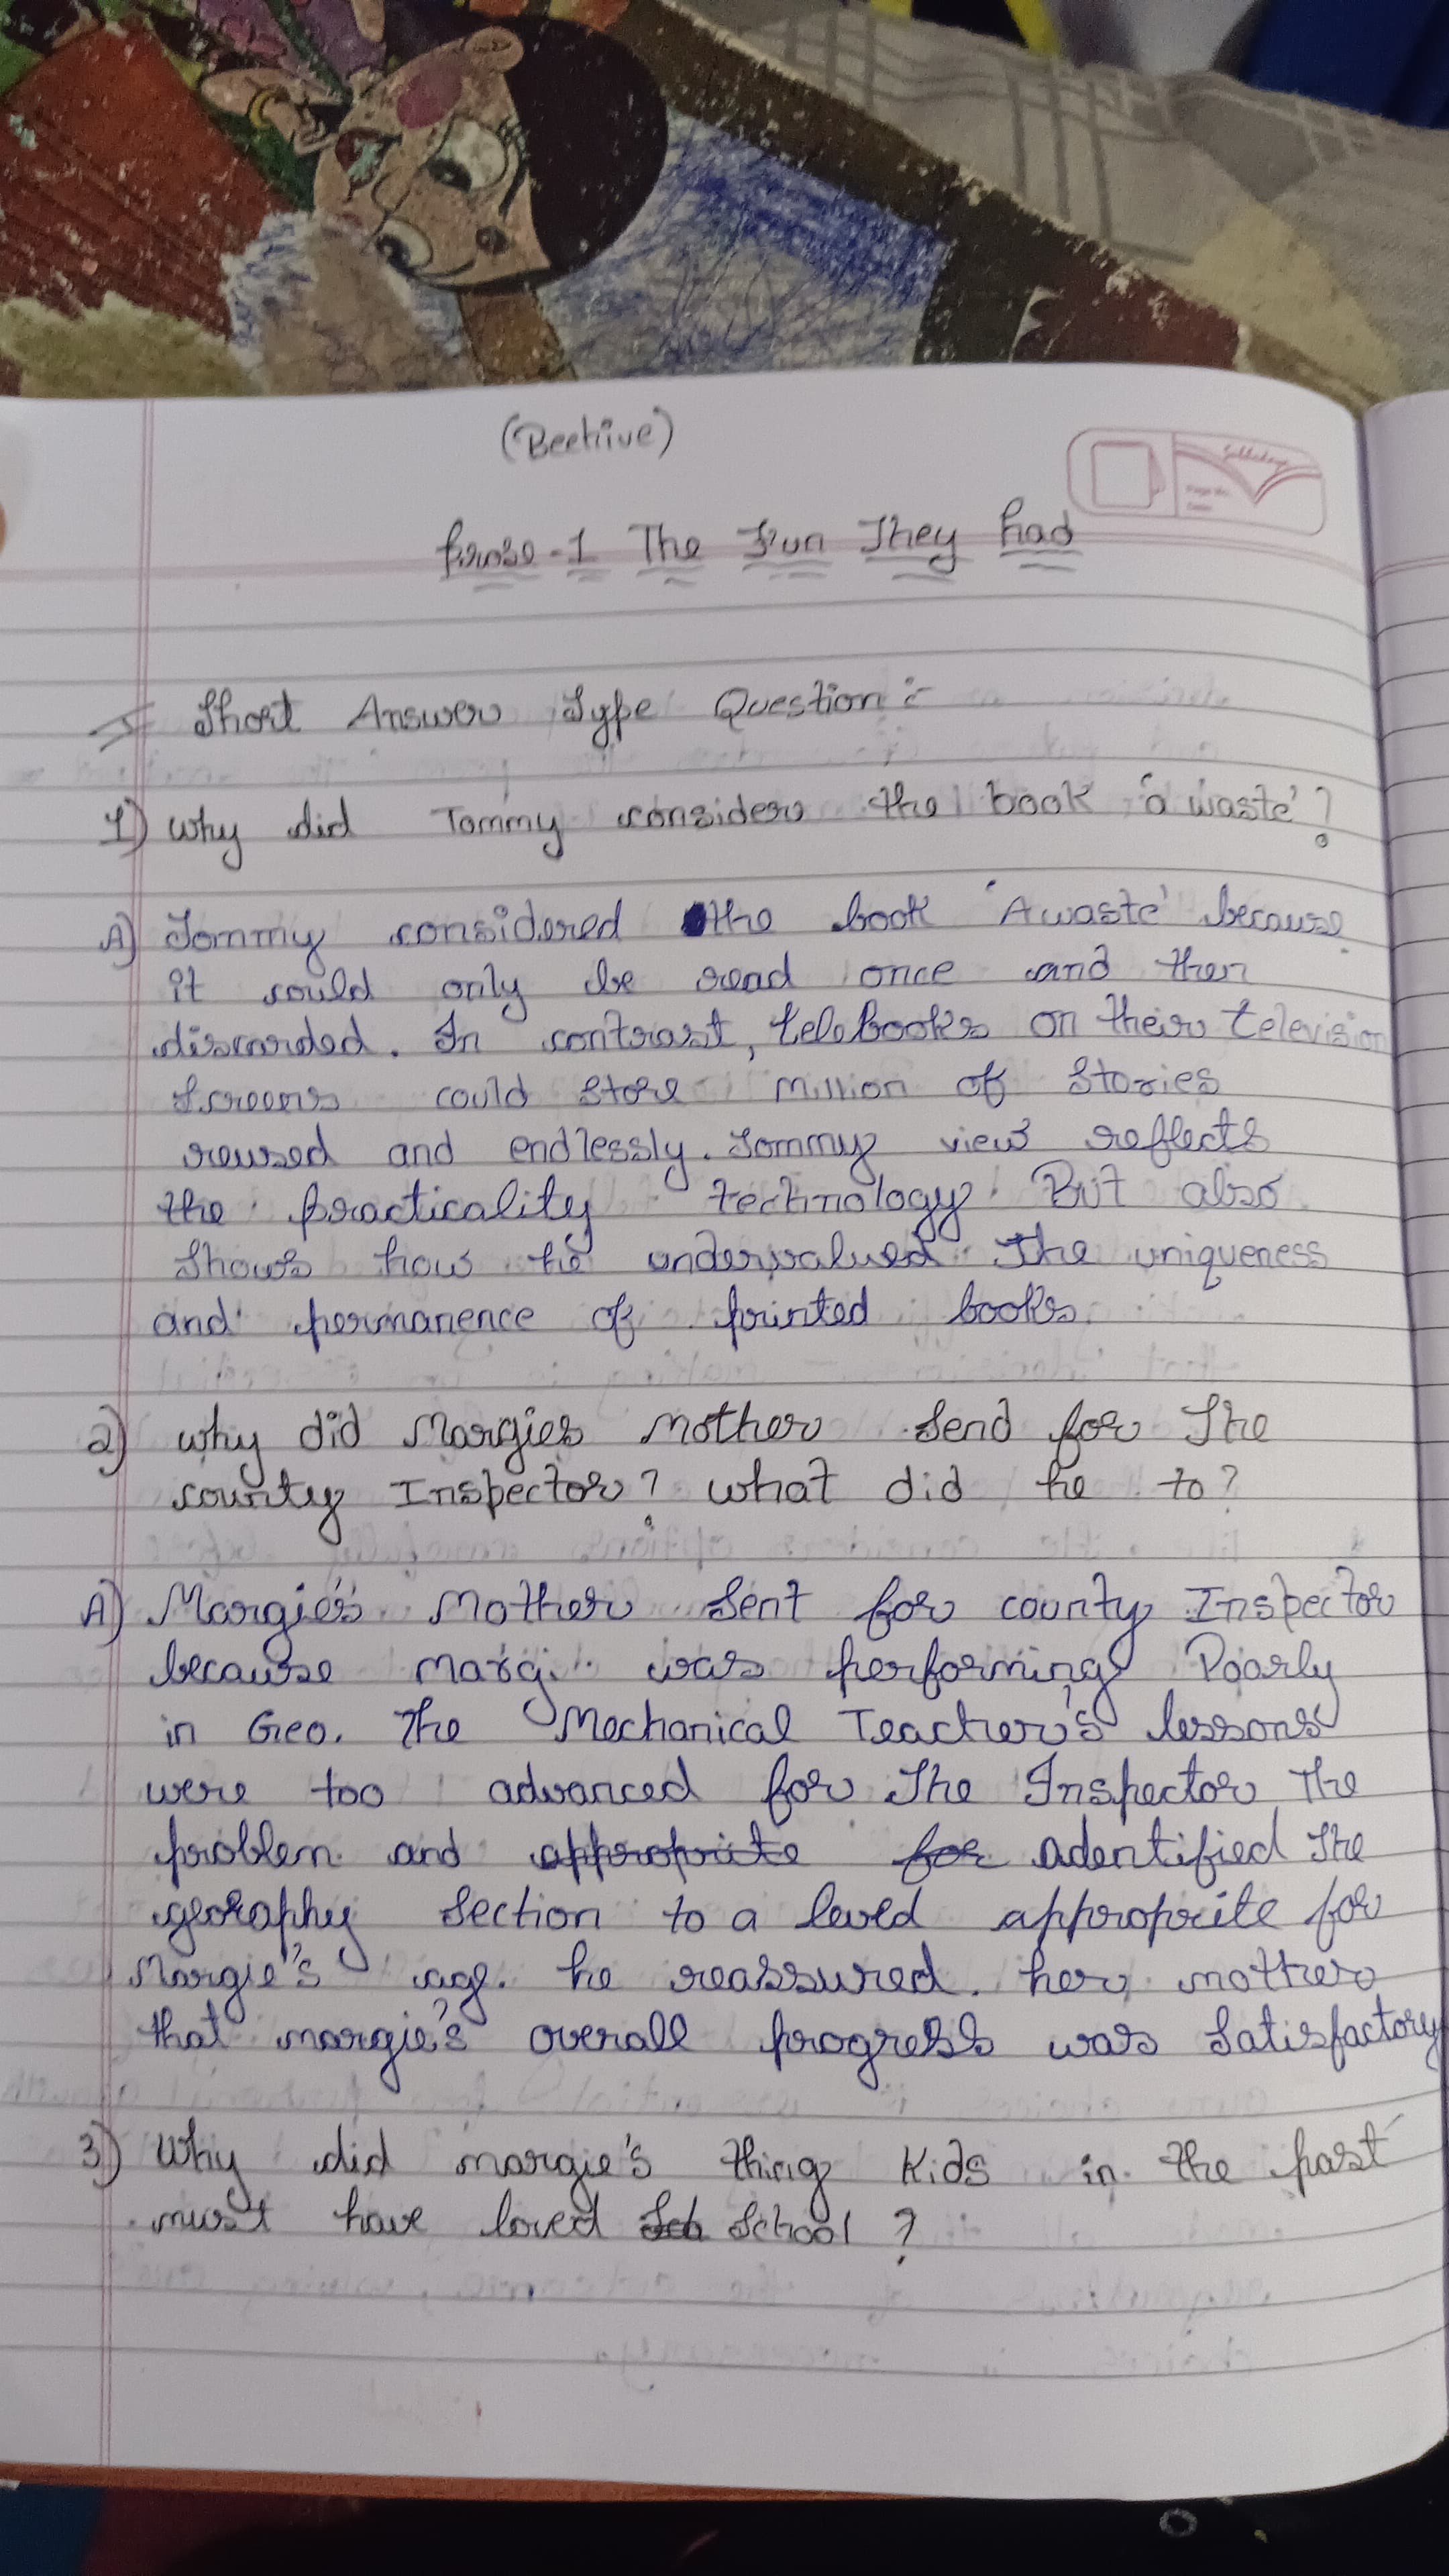 (Beehive)
Prose-1 The Fun They had
⇒ Short Answer Type Question :-
1) Why did Tommy consider the book 'a waste'?
A) Tommy considered the book 'A waste' because
it could only be read once and then
discarded. In contrast, telebooks on their television
Screens could store million of stories
reused and endlessly. Tommy view reflects
the practicality technology. But also
shows how he undervalued The uniqueness
and permanence of printed books.
2) why did Margies Mother Send for The
county Inspector? what did he to?
A) Margie's Mother Sent for county Inspector
because marg. was performing Poorly
in Geo. The Mechanical Teacher's lessons
were too advanced for The Inspector The
problem and appropriate for adentified The
geography section to a leved approprite for
Margie's age. he reassured. her mother
that margie's overall progress was Satisfactory
3) Why did margie's thing Kids in the past
must have loved Sch School ?